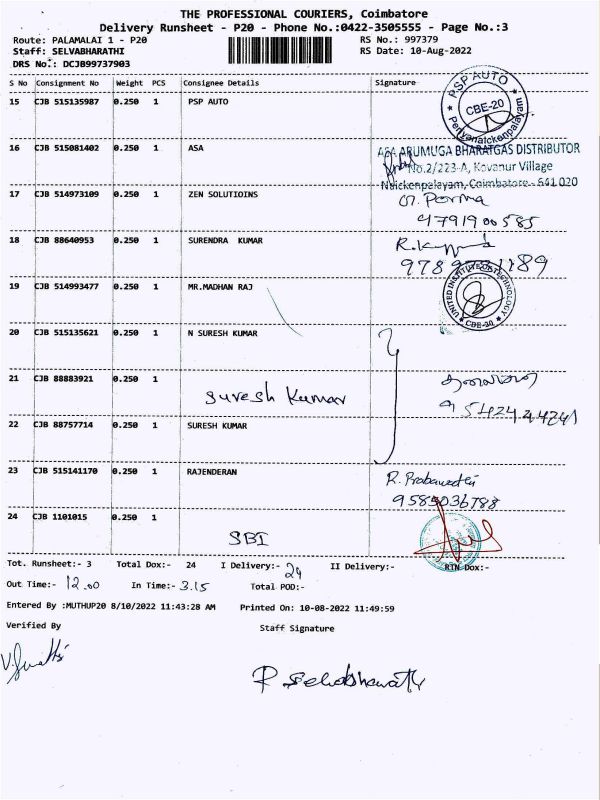 THE PROFESSIONAL COURIERS, Coimbatore
Delivery Runsheet - P20 - Phone No.:0422-3505555 - Page No.:3
Route: PALAMALAI 1 - P20 RS No.: 997379
Staff: SELVABHARATHI RS Date: 10-Aug-2022
DRS No.: DCJB99737903
S No Consignment No Weight PCS Consignee Details Signature
15 CJB 515135987 0.250 1 PSP AUTO
PSP AUTO CBE-20 Periyanaickenpalayam
16 CJB 515081402 0.250 1 ASA
ASA ARUMUGA BHARATGAS DISTRIBUTOR
No.2/223-A, Kovanur Village
Naickenpalayam, Coimbatore - 641 020
17 CJB 514973109 0.250 1 ZEN SOLUTIOINS
4791900585
18 CJB 88640953 0.250 1 SURENDRA KUMAR
19 CJB 514993477 0.250 1 MR.MADHAN RAJ
UNITED INSTITUTE OF TECHNOLOGY CBE-20
20 CJB 515135621 0.250 1 N SURESH KUMAR
21 CJB 88883921 0.250 1
Suresh Kumar
22 CJB 88757714 0.250 1 SURESH KUMAR
23 CJB 515141170 0.250 1 RAJENDERAN
24 CJB 1101015 0.250 1
SBI
Tot. Runsheet:- 3 Total Dox:- 24 I Delivery:- 24 II Delivery:- RTN Dox:-
Out Time:- 12.00 In Time:- 3.15 Total POD:-
Entered By :MUTHUP20 8/10/2022 11:43:28 AM Printed On: 10-08-2022 11:49:59
Verified By Staff Signature